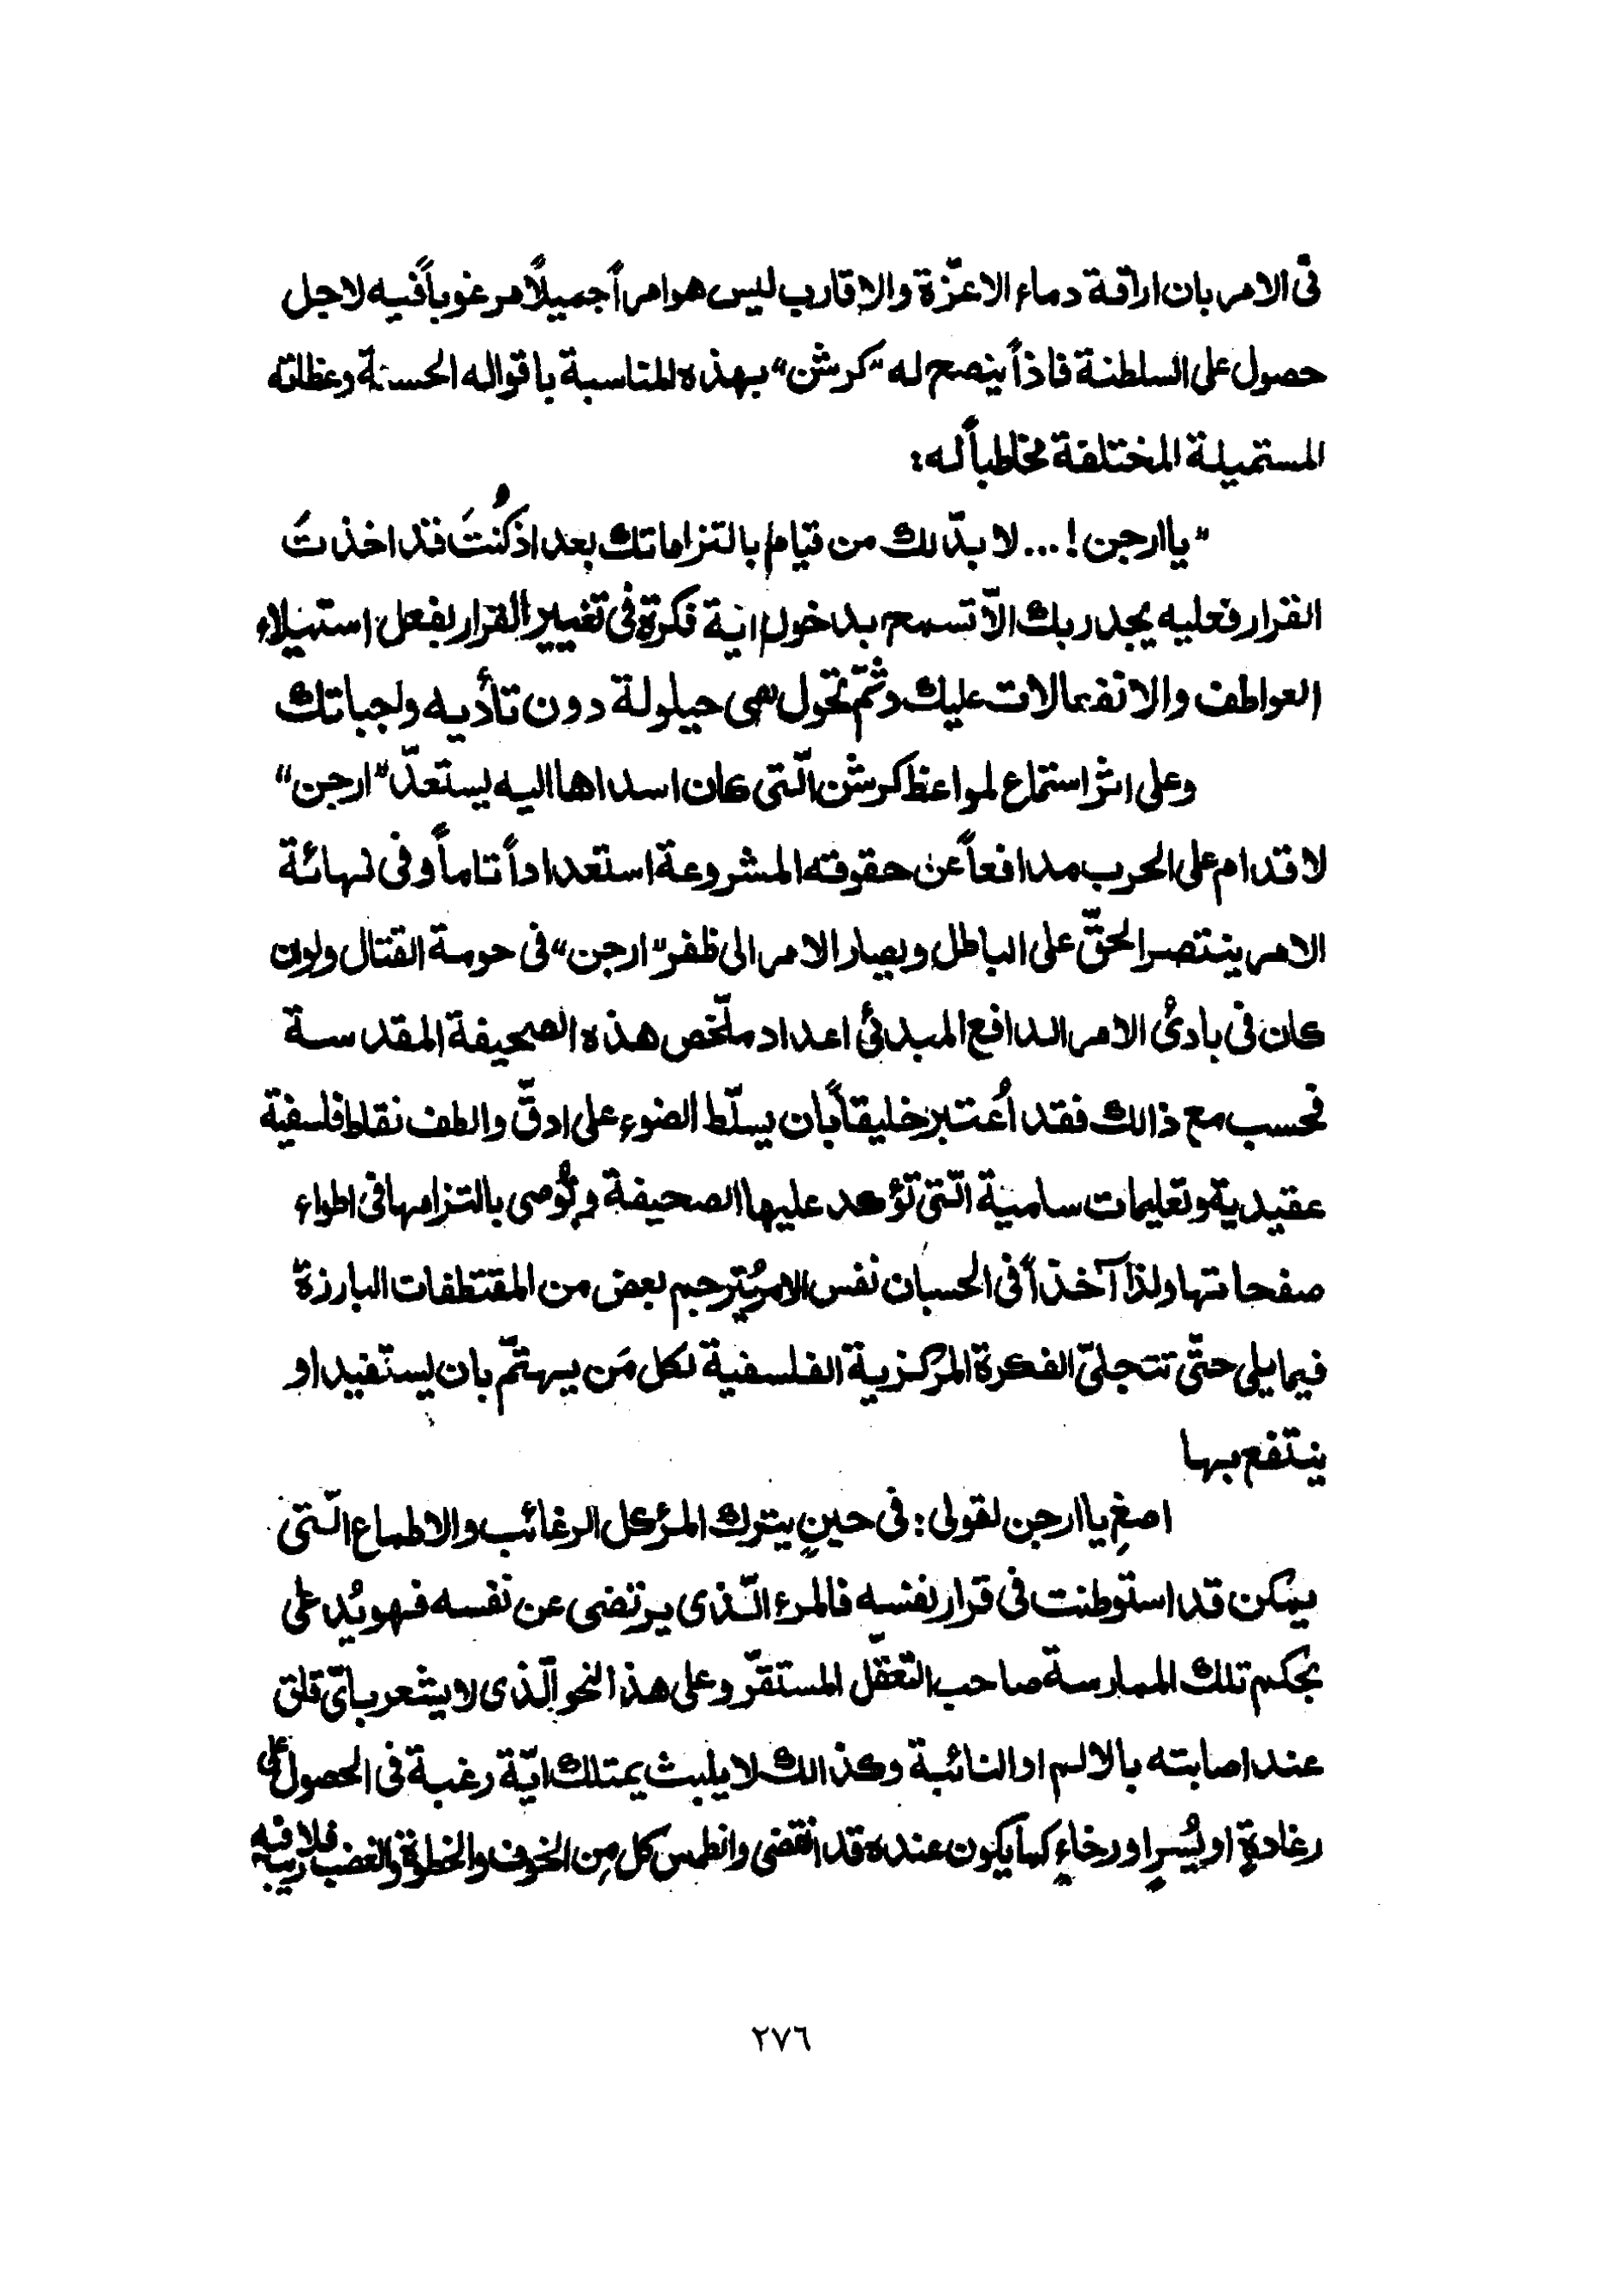 فى الامر بان اراقة دماء الاعزّة والاقارب ليس هو امراً جميلاً مرغوباً فيه لاجل
حصول على السلطنة فاذاً ينصح له "كرشن" بهذه المناسبة باقواله الحسنة وعظاته
المستميلة المختلفة مخاطباً له:
"يا ارجن! ... لا بدّ لك من قيام بالتزاماتك بعد اذ كُنتَ قد اخذتَ
القرار فعليه يجدر بك الاّ تسمح بدخول اية فكرة فى تغيير القرار بفعل استيلاء
العواطف والانفعالات عليك وثمّ تحول هى حيلولة دون تأديه واجباتك
وعلى اثر استماع لمواعظ كرشن الّتى كان اسداها اليه يستعدّ "ارجن"
لاقدام على الحرب مدافعاً عن حقوقه المشروعة استعداداً تاماً وفى نهائة
الامر ينتصر الحقّ على الباطل ويصار الامر الى ظفر "ارجن" فى حومة القتال ولو ان
كان فى بادئ الامر الدافع المبدئ اعداد ملخّص هذه الصحيفة المقدسة
فحسب مع ذالك فقد اُعتبر خليقاً بان يسلّط الضوء على ادقّ والطف نقاط فلسفية
عقيدية وتعليمات سامية الّتى تؤكد عليها الصحيفة وتُوصى بالتزامها فى اطواء
صفحاتها ولذا آخذاً فى الحسبان نفس الامر يُترجم بعض من المقتطفات البارزة
فيما يلى حتّى تتجلىّ الفكرة المركزية الفلسفية لكل مَن يهتمّ بان يستفيد او
ينتفع بها
اصغِ يا ارجن لقولى: فى حينٍ يترك المرء كل الرغائب والاطماع الّتى
يمكن قد استوطنت فى قرار نفسه فالمرء الّذى يرتضى عن نفسه فهو يُدعى
بحكم تلك الممارسة صاحب التعقّل المستقرّ وعلى هذا النحو الّذى لا يشعر باىّ قلق
عند اصابته بالالم او النائبة وكذالك لا يلبث يمتلك ايّة رغبة فى الحصول على
رغادةٍ او يُسرٍ او رخاءٍ كما يكون عنده قد انقضى وانطمس كل مِن الخوف والخطرة والغضب فلا ريب فيه
٢٧٦